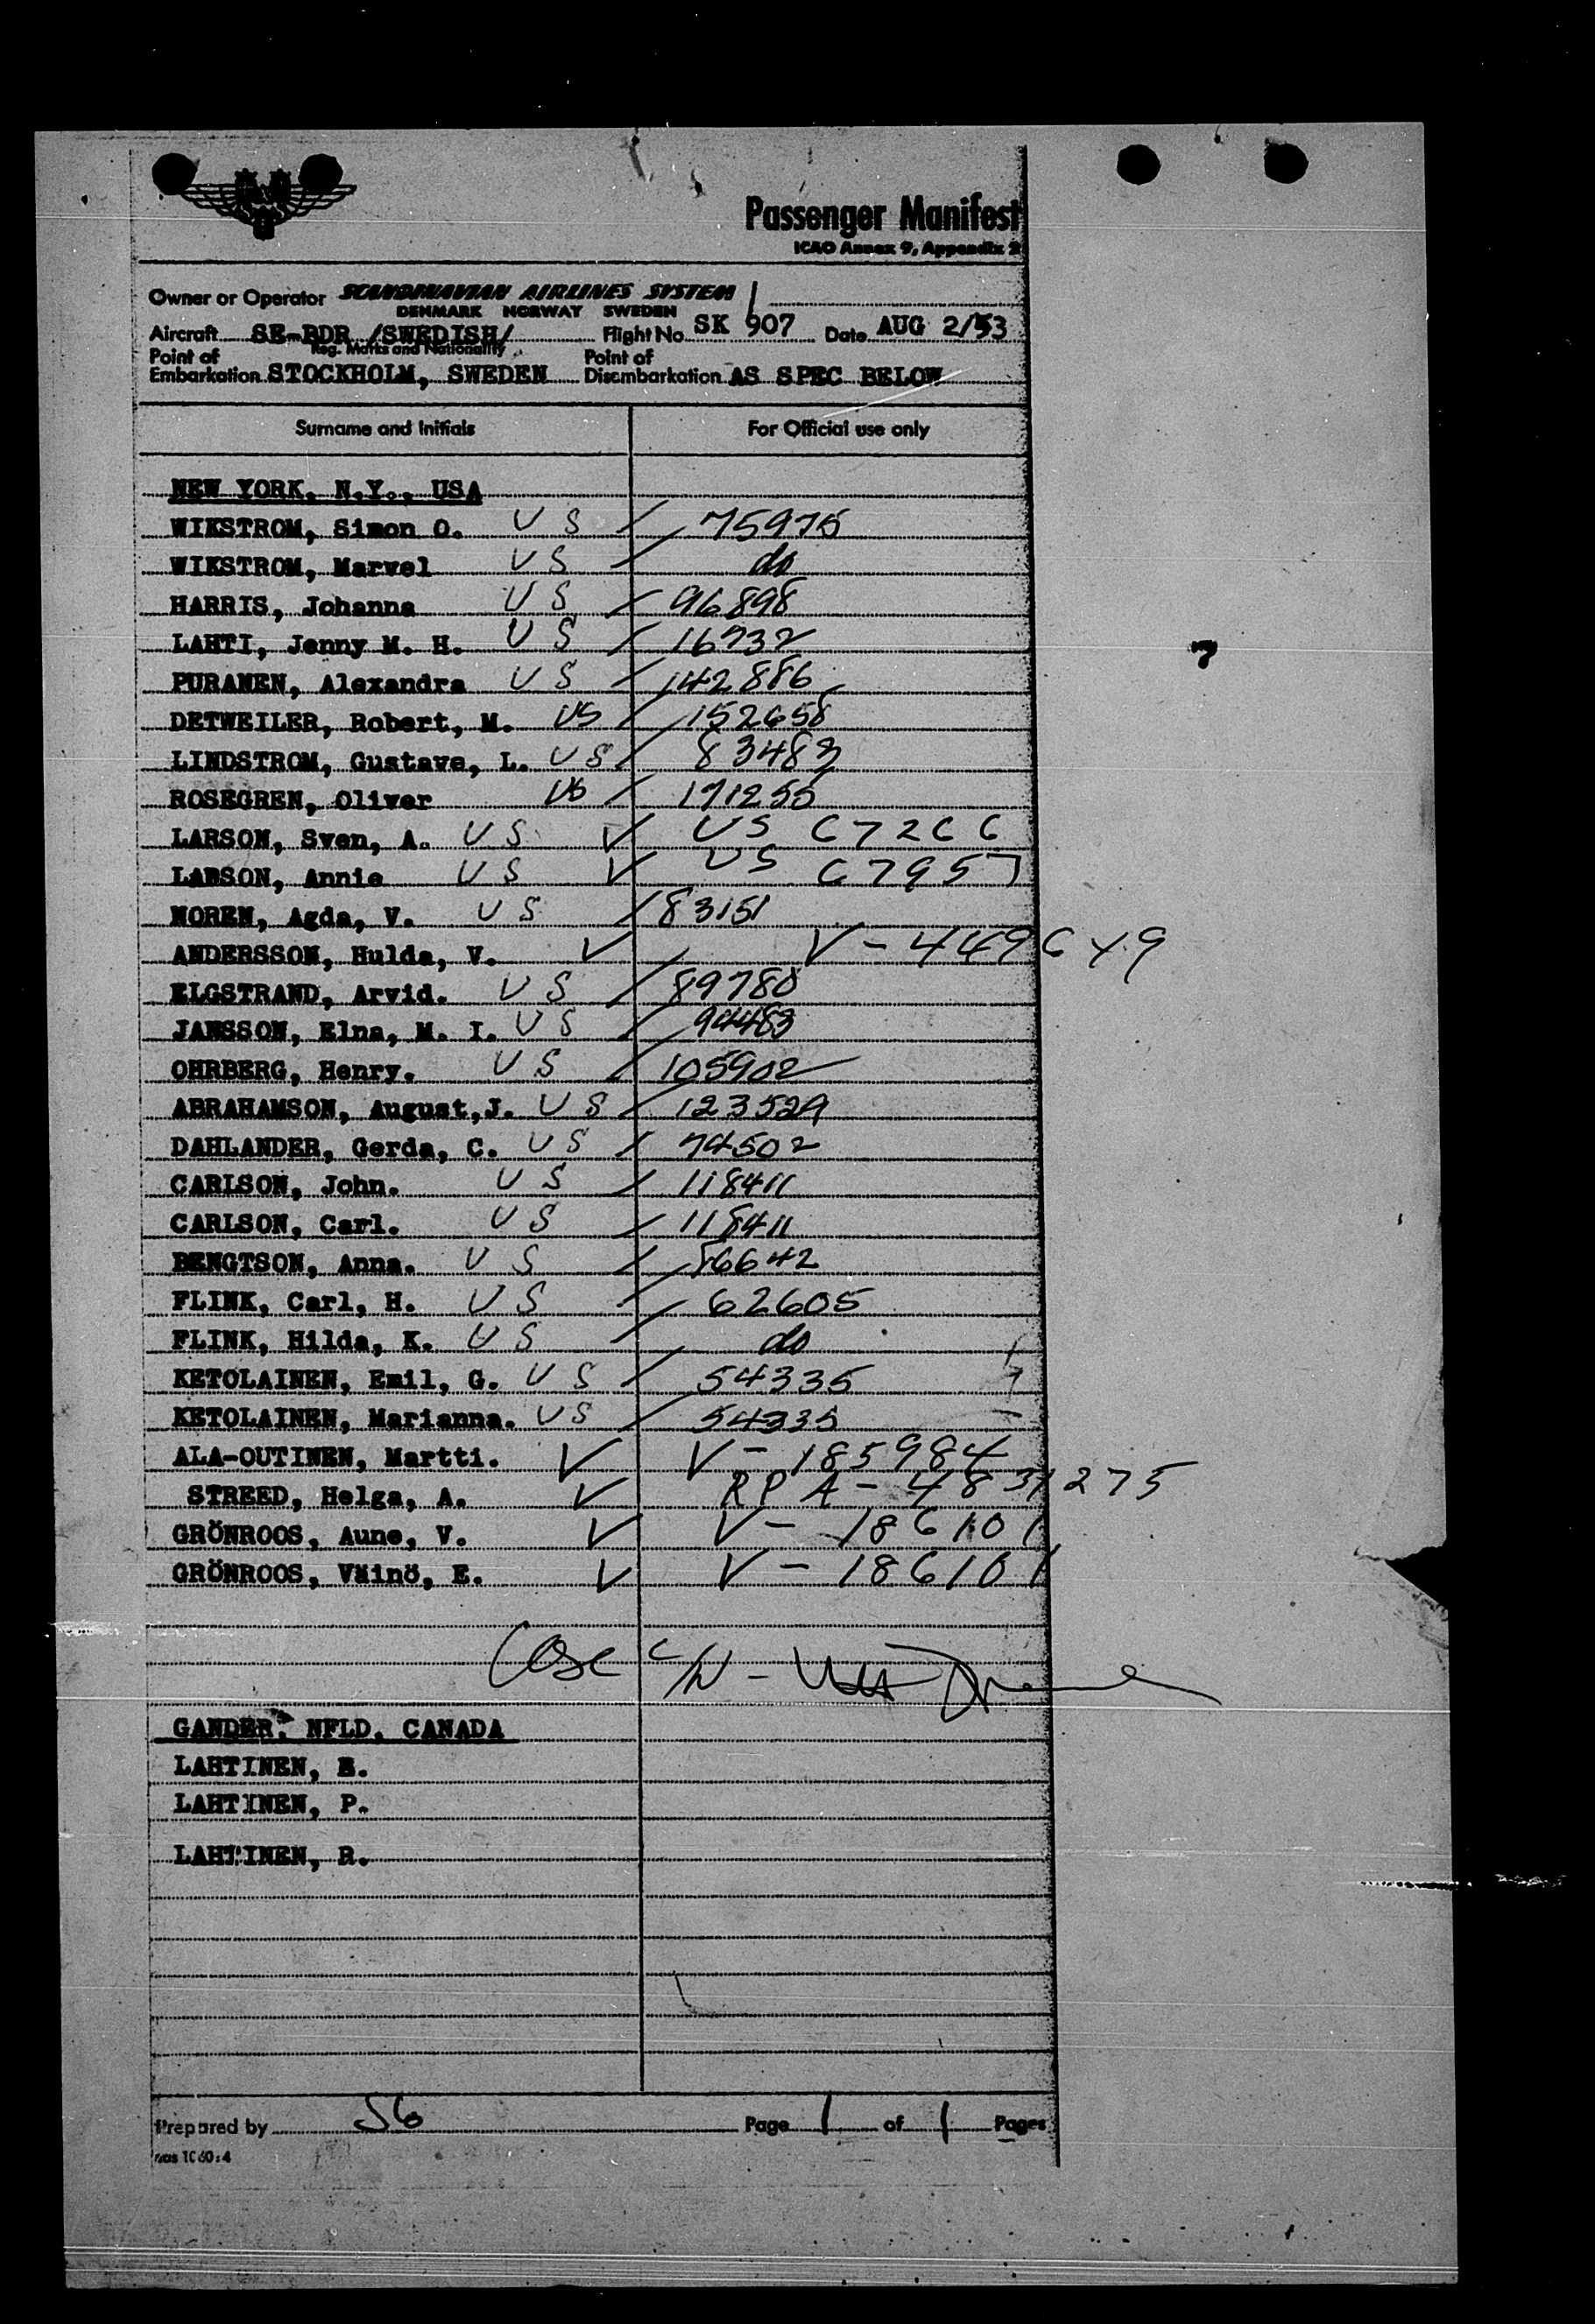 Passenger Manifest
ICAO Annex 9, Appendix 2
Owner or Operator SCANDINAVIAN AIRLINES SYSTEM
DENMARK NORWAY SWEDEN
Aircraft SE-BDR /SWEDISH/ Flight No. SK 907 Date AUG 2/53
Reg. Marks and Nationality
Point of Embarkation STOCKHOLM, SWEDEN Point of Disembarkation AS SPEC BELOW
Surname and Initials For Official use only
NEW YORK, N.Y., USA
WIKSTROM, Simon O. US / 75975
WIKSTROM, Marvel US / do
HARRIS, Johanna US / 96898
LAHTI, Jenny M. H. US / 16732
PURANEN, Alexandra US / 142886
DETWEILER, Robert, M. US / 152658
LINDSTROM, Gustave, L. US / 83483
ROSEGREN, Oliver US / 171255
LARSON, Sven, A. US ✓ US 67266
LARSON, Annie US ✓ US 67957
NOREN, Agda, V. US / 83151
ANDERSSON, Hulda, V. ✓ V-449649
ELGSTRAND, Arvid. US / 89780
JANSSON, Elna, M. I. US / 94483
OHRBERG, Henry. US / 105902
ABRAHAMSON, August,J. US / 123529
DAHLANDER, Gerda, C. US / 74502
CARLSON, John. US / 118411
CARLSON, Carl. US / 118411
BENGTSON, Anna. US / 86642
FLINK, Carl, H. US / 62605
FLINK, Hilda, K. US / do
KETOLAINEN, Emil, G. US / 54335
KETOLAINEN, Marianna. US / 54335
ALA-OUTINEN, Martti. ✓ V-185984
STREED, Helga, A. ✓ RP A-4831275
GRÖNROOS, Aune, V. ✓ V-186101
GRÖNROOS, Väinö, E. ✓ V-186101
GANDER, NFLD. CANADA
LAHTINEN, E.
LAHTINEN, P.
LAHTINEN, R.
Prepared by Page 1 of 1 Pages